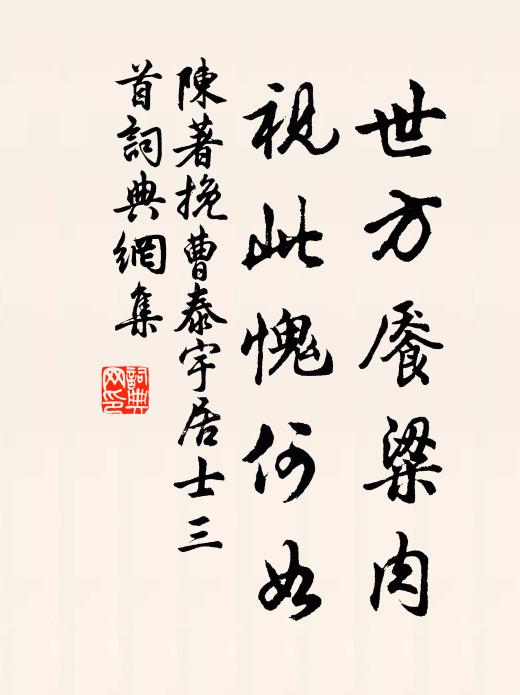 世方餍粱肉
視此愧何如
陳著挽曹泰宇居士三
首詞典網集
詞典
网印